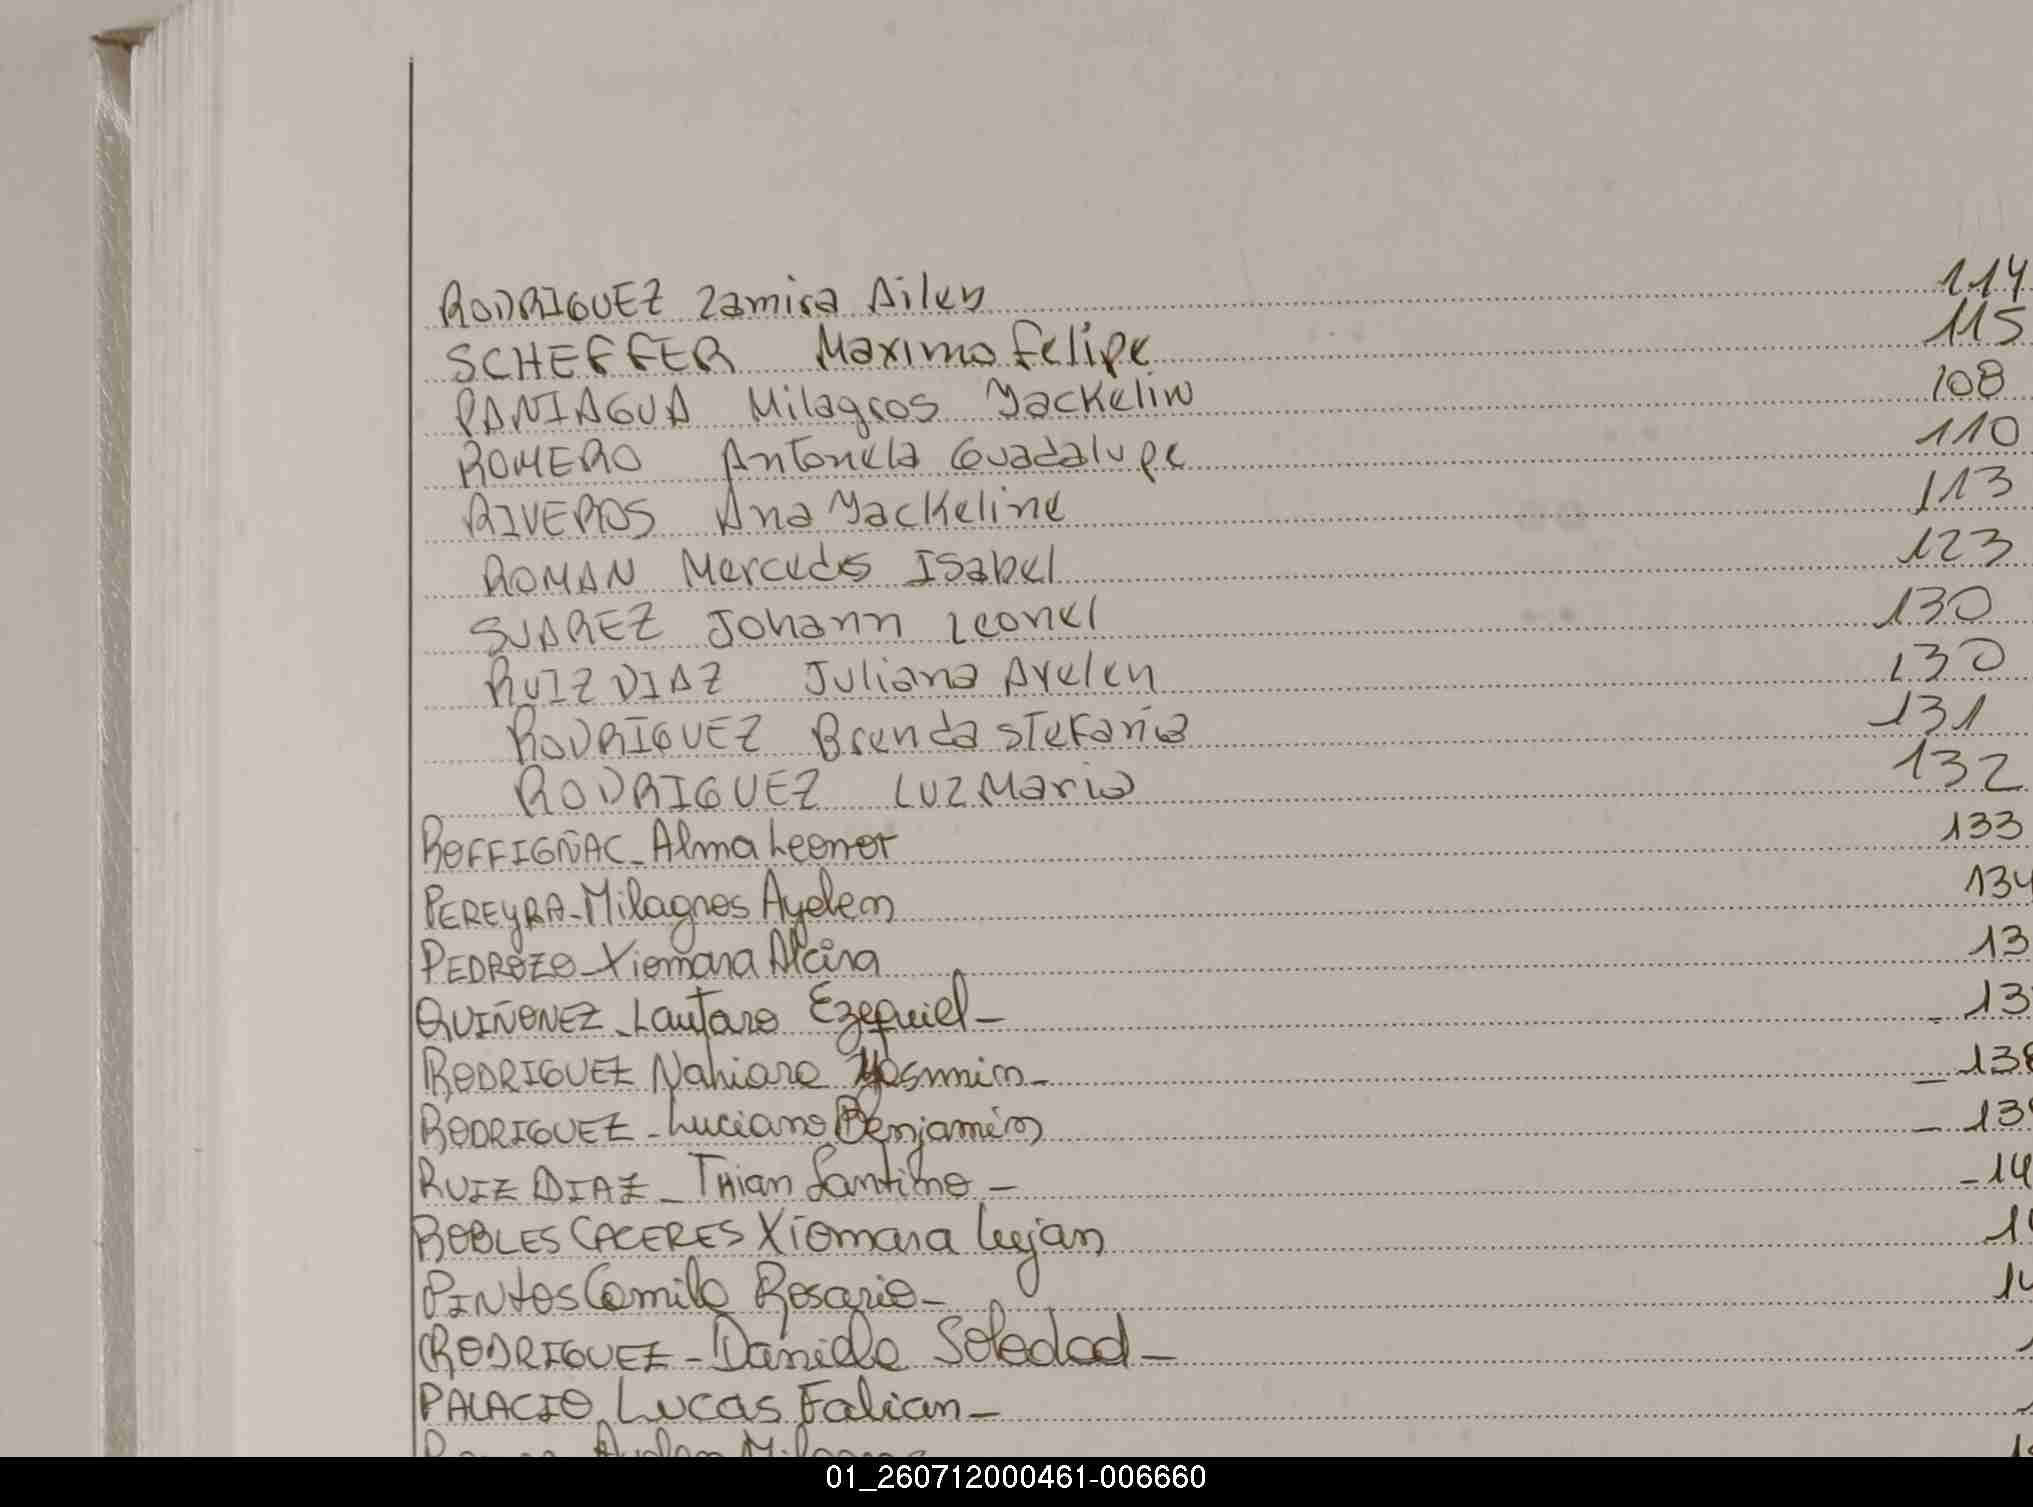 RODRIGUEZ Zamira Ailen 114
SCHEFFER Maximo Felipe 115
PANIAGUA Milagros Yackelin 108
ROMERO Antonela Guadalupe 110
RIVEROS Ana Yackeline 113
ROMAN Mercedes Isabel 123
SUAREZ Johann Leonel 130
RUIZ DIAZ Juliana Ayelen 130
RODRIGUEZ Brenda Stefania 131
RODRIGUEZ Luz Maria 132
ROFFIGÑAC_Alma Leonor 133
PEREYRA-Milagros Ayelen 134
PEDROZO-Xiomara Alcira 13
QUIÑONEZ-Lautaro Ezequiel- 13
RODRIGUEZ Nahiara Yasmin- -138
RODRIGUEZ-Luciano Benjamín -13
RUIZ DIAZ-Thian Santino- -14
ROBLES CACERES Xiomara Lujan 1
PINTOS Camila Rosario- 14
RODRIGUEZ-Daniela Soledad-
PALACIO Lucas Fabian-
01_260712000461-006660